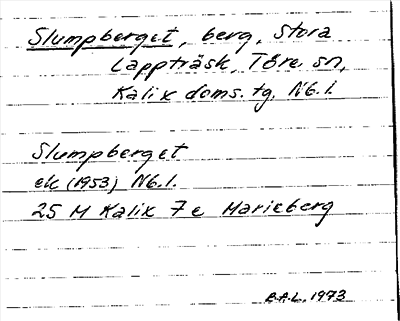 Slumpberget, berg, Stora
Lappträsk, Töre sn,
Kalix doms. tg. Nb. l.
Slumpberget
ek (1953) Nb. l.
25 M Kalix 7 e Marieberg
B.A.L. 1973